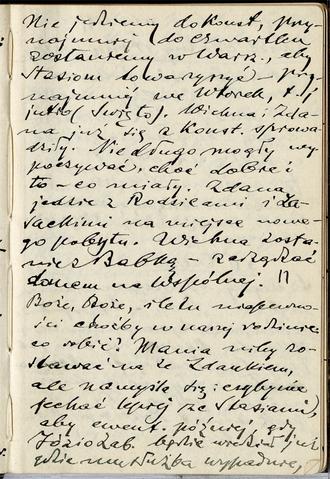 Nie jedziemy do Konst., przy-
najmniej do czwartku
zostaniemy w Warsz., aby
Stasiom towarzyszyć – przy-
najmniej we Wtorek, t. j.
jutro (Święto). Wichna i Zda-
na już się z Konst. sprowa-
dziły. Niedługo mogły wy-
poczywać, choć dobre i
to – co miały. Zdana
jedzie z Rodzicami i
na miejsce nowe-
go pobytu. Wichna zosta-
nie z Babką – zarządzać
domem na Wspólnej. !!
Boże, Boże, ileż niepewno-
ści choćby w naszej rodzinie:
co robić? Mania niby zo-
stawać na że Zdankiem,
ale namyśla się: czyby nie
jechać lepiej ze Stasiami,
aby ewent. później, gdy
Józio będzie wiedział już
gdzie mu służba wypadnie,